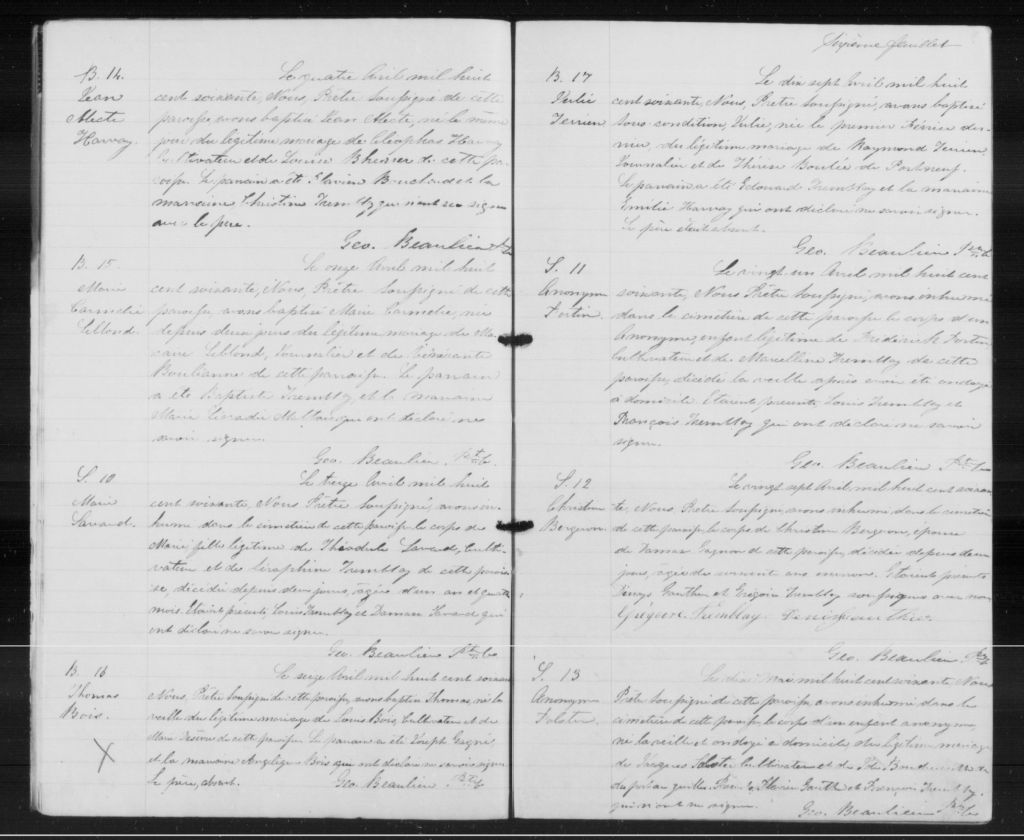 B. 14.
Jean
Alecte
Harvay.
Le quatre Avril mil huit
cent soixante, Nous, Prêtre soussigné de cette
paroisse avons baptisé Jean Alecte, né le même
jour du légitime mariage de Cléophas Harvay
Cultivateur et de Louise de cette pa-
roisse. Le parrain a été Flavien Bouchard et la
marraine Christine Tremblay qui n'ont su signer
avec le père.
Geo. Beaulieu Ptre
B. 15.
Marie
Carmélie
Leblond.
Le onze Avril mil huit
cent soixante, Nous, Prêtre soussigné de cette
paroisse, avons baptisé Marie Carmélie, née
depuis deux jours du légitime mariage de Ma-
caire Leblond, Journalier et de
Boulianne de cette paroisse. Le parrain
a été Baptiste Tremblay, et la marraine
Marie Maltais qui ont déclaré ne
savoir signer.
Geo. Beaulieu Ptre
S. 10
Marie
Savard.
Le treize Avril mil huit
cent soixante, Nous Prêtre soussigné, avons in-
humé dans le cimetière de cette paroisse le corps de
Marie fille légitime de Théodule Savard, Culti-
vateur et de Séraphine Tremblay de cette parois-
se, décédée depuis deux jours, âgée d'un an et quatre
mois. Étaient présents, Louis Tremblay et Damase qui
ont déclaré ne savoir signer.
Geo. Beaulieu Ptre
B. 16
Thomas
Bois.
X
Le seize Avril mil huit cent soixante
Nous, Prêtre soussigné de cette paroisse avons baptisé Thomas, né la
veille du légitime mariage de Louis Bois, Cultivateur et de
Marie de cette paroisse. Le parrain a été Joseph Gagné,
et la marraine Angélique Bois qui ont déclaré ne savoir signer
le père, absent.
Geo. Beaulieu Ptre
Sixième feuillet
B. 17
Julie
Terrien
Le dix sept Avril mil huit
cent soixante, Nous, Prêtre soussigné, avons baptisé
sous condition, Julie, née le premier Février der-
nier, du légitime mariage de Raymond Terrien,
Journalier et de Thérèse de Portneuf.
Le parrain a été Edouard Tremblay et la marraine
Emilie Harvay qui ont déclaré ne savoir signer.
Le père était absent.
Geo. Beaulieu Ptre
S. 11
Anonyme
Fortin.
Le vingt un Avril mil huit cent
soixante, Nous Prêtre soussigné, avons inhumé
dans le cimetière de cette paroisse le corps d'un
Anonyme, enfant légitime de Frédérick Fortin
Cultivateur et de Marcelline Tremblay de cette
paroisse, décédé la veille après avoir été ondoyé
à domicile. Étaient présents, Louis Tremblay et
François Tremblay qui ont déclaré ne savoir
signer.
Geo. Beaulieu Ptre
S. 12
Christine
Bergeron.
Le vingt sept Avril mil huit cent soixan-
te, Nous, Prêtre soussigné, avons inhumé dans le cimetière
de cette paroisse le corps de Christine Bergeron, épouse
de Damase Gagnon de cette paroisse, décédée depuis deux
jours, âgée de ans environ. Étaient présents
Denys Gauthier et Grégoire Tremblay soussignés avec nous
Grégoire Tremblay. Denis Gauthier
Geo. Beaulieu Ptre
S. 13
Anonyme
Le dix mai mil huit cent soixante Nous
Prêtre soussigné de cette paroisse avons inhumé dans le
cimetière de cette paroisse le corps d'un enfant anonyme,
né la veille et ondoyé à domicile du légitime mariage
de Jacques Cultivateur et de
Flavien Gauthier et François Tremblay,
qui n'ont su signer.
Geo. Beaulieu Ptre